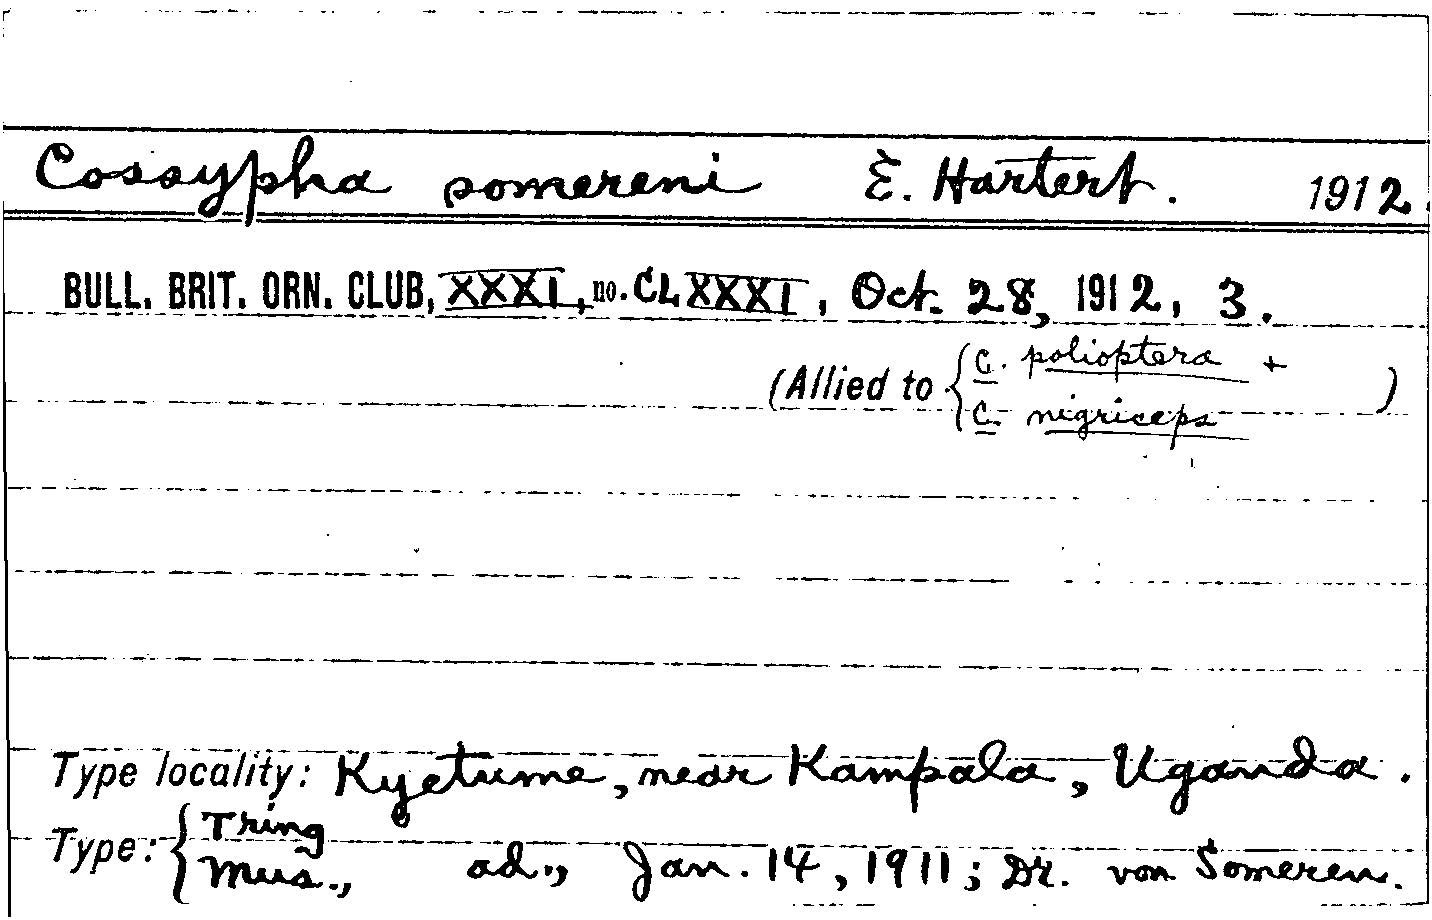 Cossypha somereni E. Hartert. 1912.
BULL. BRIT. ORN. CLUB, XXXI, no. CLXXXI, Oct. 28, 1912, 3.
(Allied to { C. polioptera +
C. nigriceps )
Type locality: Kyetume, near Kampala, Uganda.
Type: { Tring
Mus., ad., Jan. 14, 1911; Dr. von Someren.